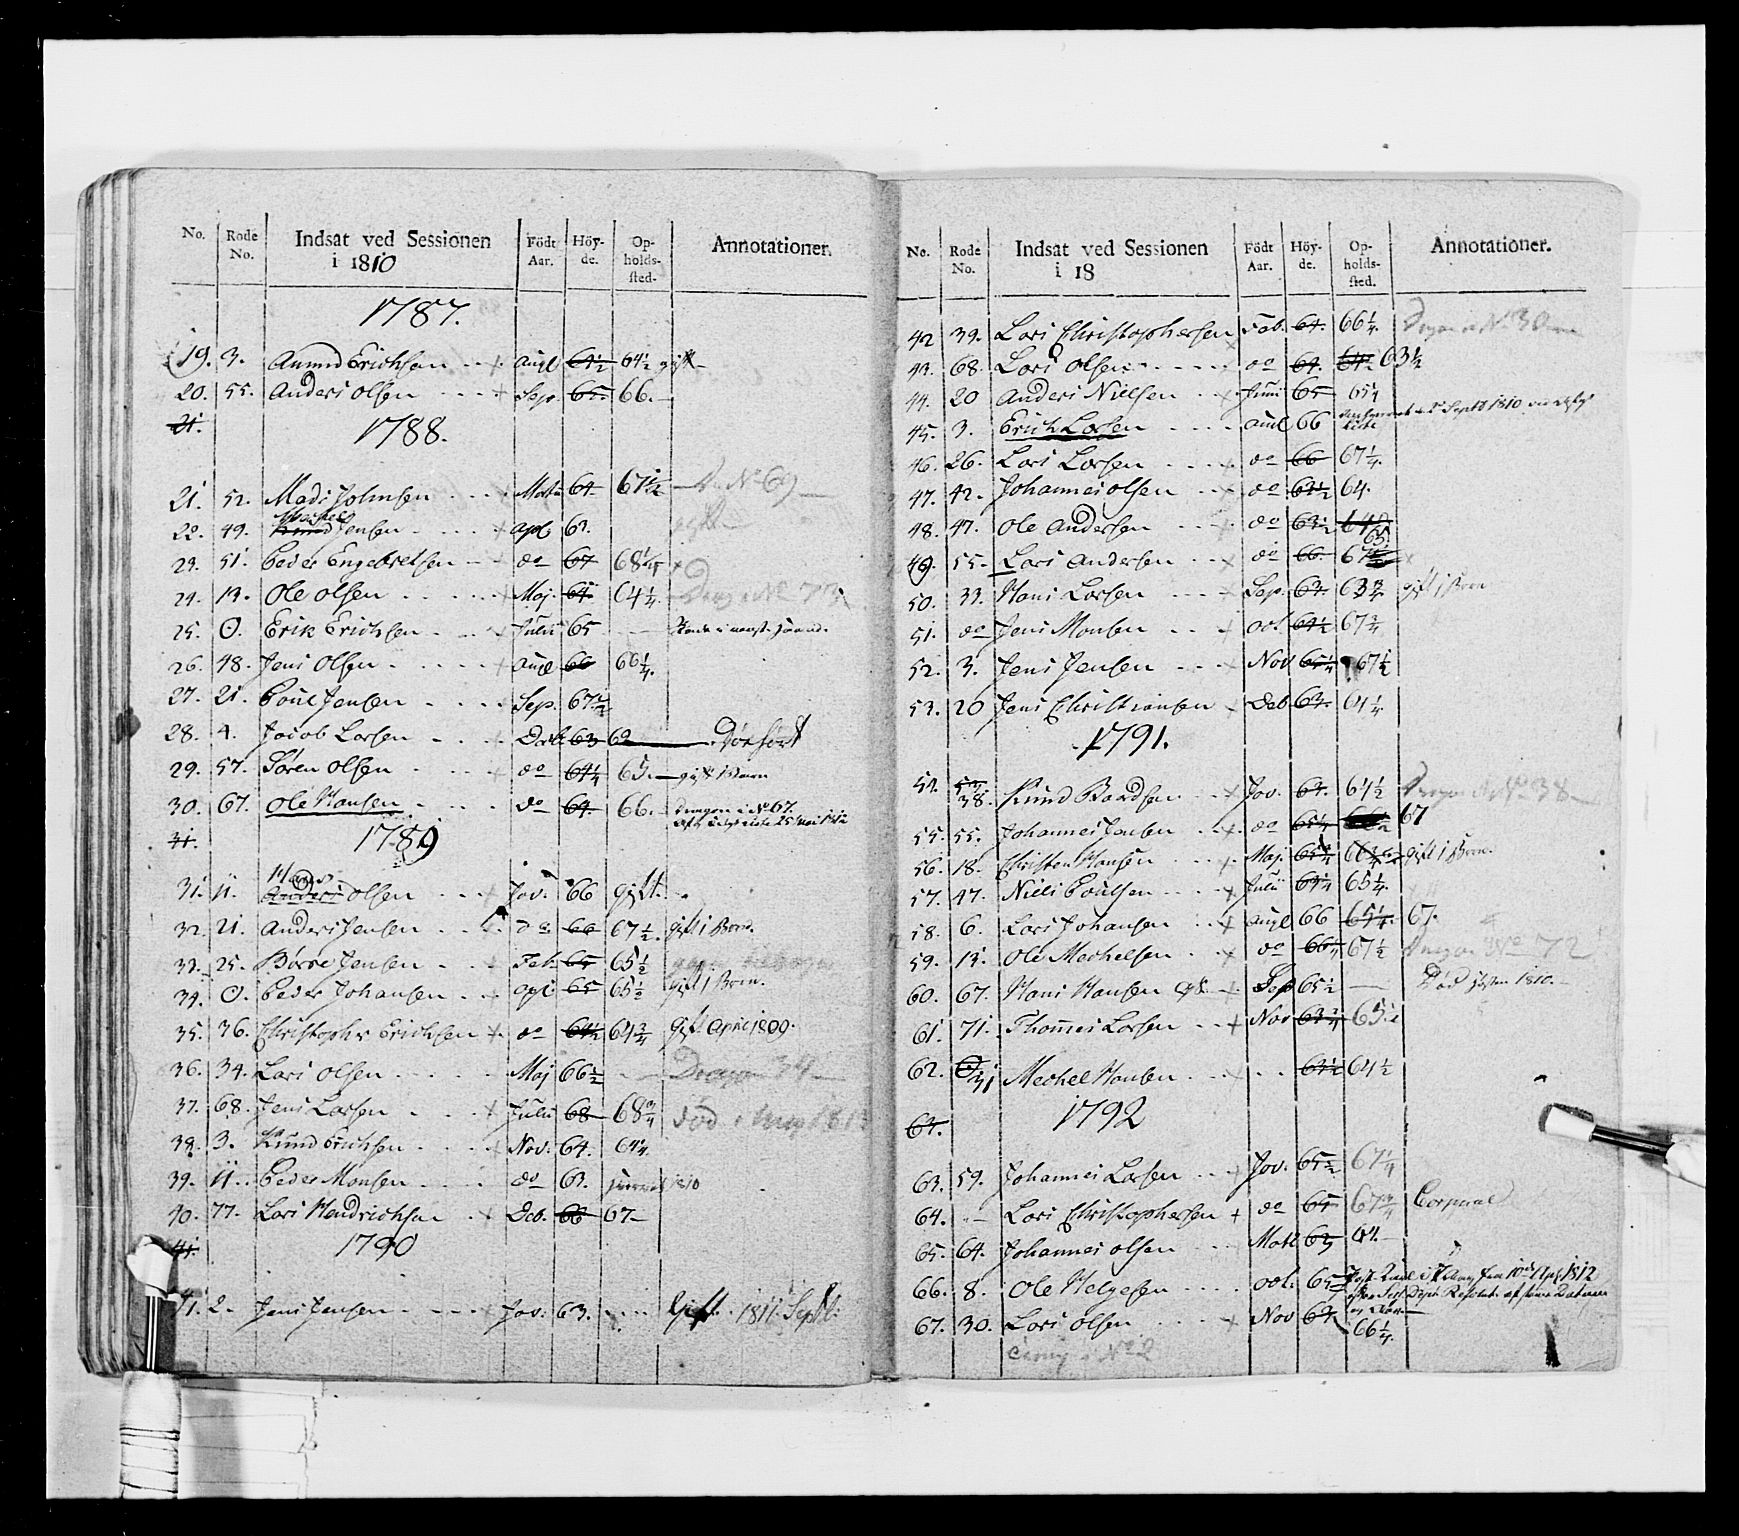 No. Rode No. Indsat ved Sessionen i 1810 Födt Aar. Höyde. Opholdssted. Annotationer.
1787.
19. 3. Amund Erichsen Augl 64½ 64½ gift
20. 55. Anders Olsen Sep. 65 66.
21.
1788.
21. 52. Mads Johnsen Marti 64 67½ No 69
22. 49. Knud Jensen apl 63.
23. 51. Peder Engebretsen do 67 68¼
24. 13. Ole Olsen Maj. 64 64¼ Drag: No 73
25. 0. Erik Erichsen Julii 65
26. 48. Jens Olsen Augl 66 66¼
27. 21. Poul Jensen Sep. 67½
28. 4. Jacob Larsen Decb 63 62
29. 57. Søren Olsen do 64¼ 65. gift 1 Barn
30. 67. Ole Hansen do 64. 66. Dragon i No 67.
31.
1789
31. 11. Hans Anders Olsen Jan. 66 gift.
32. 21. Anders Jensen do 66 67½ gift 1 Barn.
33. 25. Børre Jensen Feb. 65 65½
34. 0. Peder Johansen apl 65 65½ gift 1 Barn.
35. 36. Christopher Erichsen do 64½ 64¾ gift April 1809.
36. 34. Lars Olsen Maj 66½ Dragon 34
37. 68. Jens Larsen Julii 68 68¾ død i May 1813
38. 3. Knud Erichsen Nov. 64. 64¼
39. 11. Peder Monsen do 63. 1810
40. 77. Lars Hendrichsen Deb. 66 67
41.
1790
41. 2. Jens Jensen Jan. 63. Gift. 1811. Septb.
No. Rode No. Indsat ved Sessionen i 18 Födt Aar. Höyde. Opholdssted. Annotationer.
42 39. Lars Christophersen Feb. 64. 66¼ Dragon No 30
43. 68. Lars Olsen do 64. 64½ 63½
44. 20 Anders Nielsen Junii 65 65¼
45. 3. Erich Larsen Augl 66 Septb 1810
46. 26. Lars Larsen do 66 67¼
47. 42. Johannes Olsen do 63½ 64.
48. 47. Ole Andersen do 63½ 64 65.
49. 55. Lars Andersen do 66. 67
50. 33. Hans Larsen Sep. 63. 63¾ gift 1 Barn
51. do Jens Monsen oct 64½ 67¾
52. 3. Jens Jensen Nov 65¼ 67½
53. 20 Jens Christiansen Deb 63. 64¼
1791.
54. 38. Knud Baardsen Jan. 63. 64½ Dragon No 38
55. 55. Johannes Jensen do 65¼ 67
56. 18. Christen Hansen Maj. 65¾ gift 1 Barn.
57. 47. Niels Poulsen Julii 64¼ 65¼
58. 6. Lars Johansen Augl 66 65¼ 67.
59. 13. Ole Mechelsen do 66 67½ Dragon No 72
60. 67. Hans Hansen Sep 65½ Død 1810.
61. 71. Thomes Larsen Nov 63¾ 65½
62. 31 Mechel Hansen 63½ 64½
63.
1792
63. 59. Johannes Larsen Jan. 65½ 67¼
64. Lars Christophersen do 65 67¾ Corporal
65. 64. Johannes Olsen Mart 63 64.
66. 8. Ole Helgesen oct. 65 1812
67. 30. Lars Olsen Nov 64 66¼
No 2